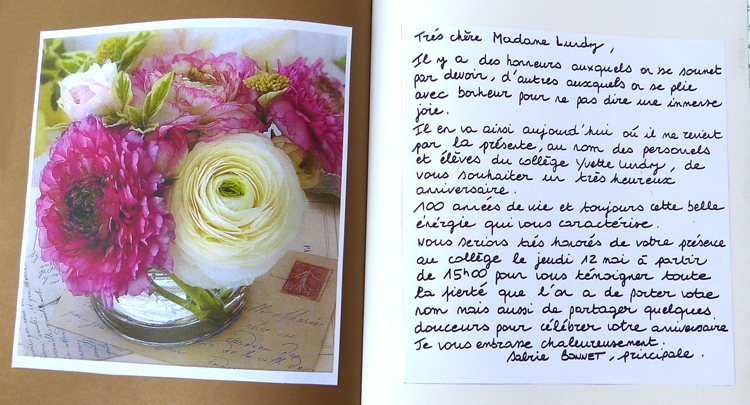 Très chère Madame Lundy,
Il y a des honneurs auxquels on se soumet
par devoir, d'autres auxquels on se plie
avec bonheur pour ne pas dire une immense
joie.
Il en va ainsi aujourd'hui où il me revient
par la présente, au nom des personnels
et élèves du collège Yvette Lundy, de
vous souhaiter un très heureux
anniversaire.
100 années de vie et toujours cette belle
énergie qui vous caractérise.
Nous serions très honorés de votre présence
au collège le jeudi 12 mai à partir
de 15h00 pour vous témoigner toute
la fierté que l'on a de porter votre
nom mais aussi de partager quelques
douceurs pour célébrer votre anniversaire
Je vous embrasse chaleureusement.
BONNET, principale.